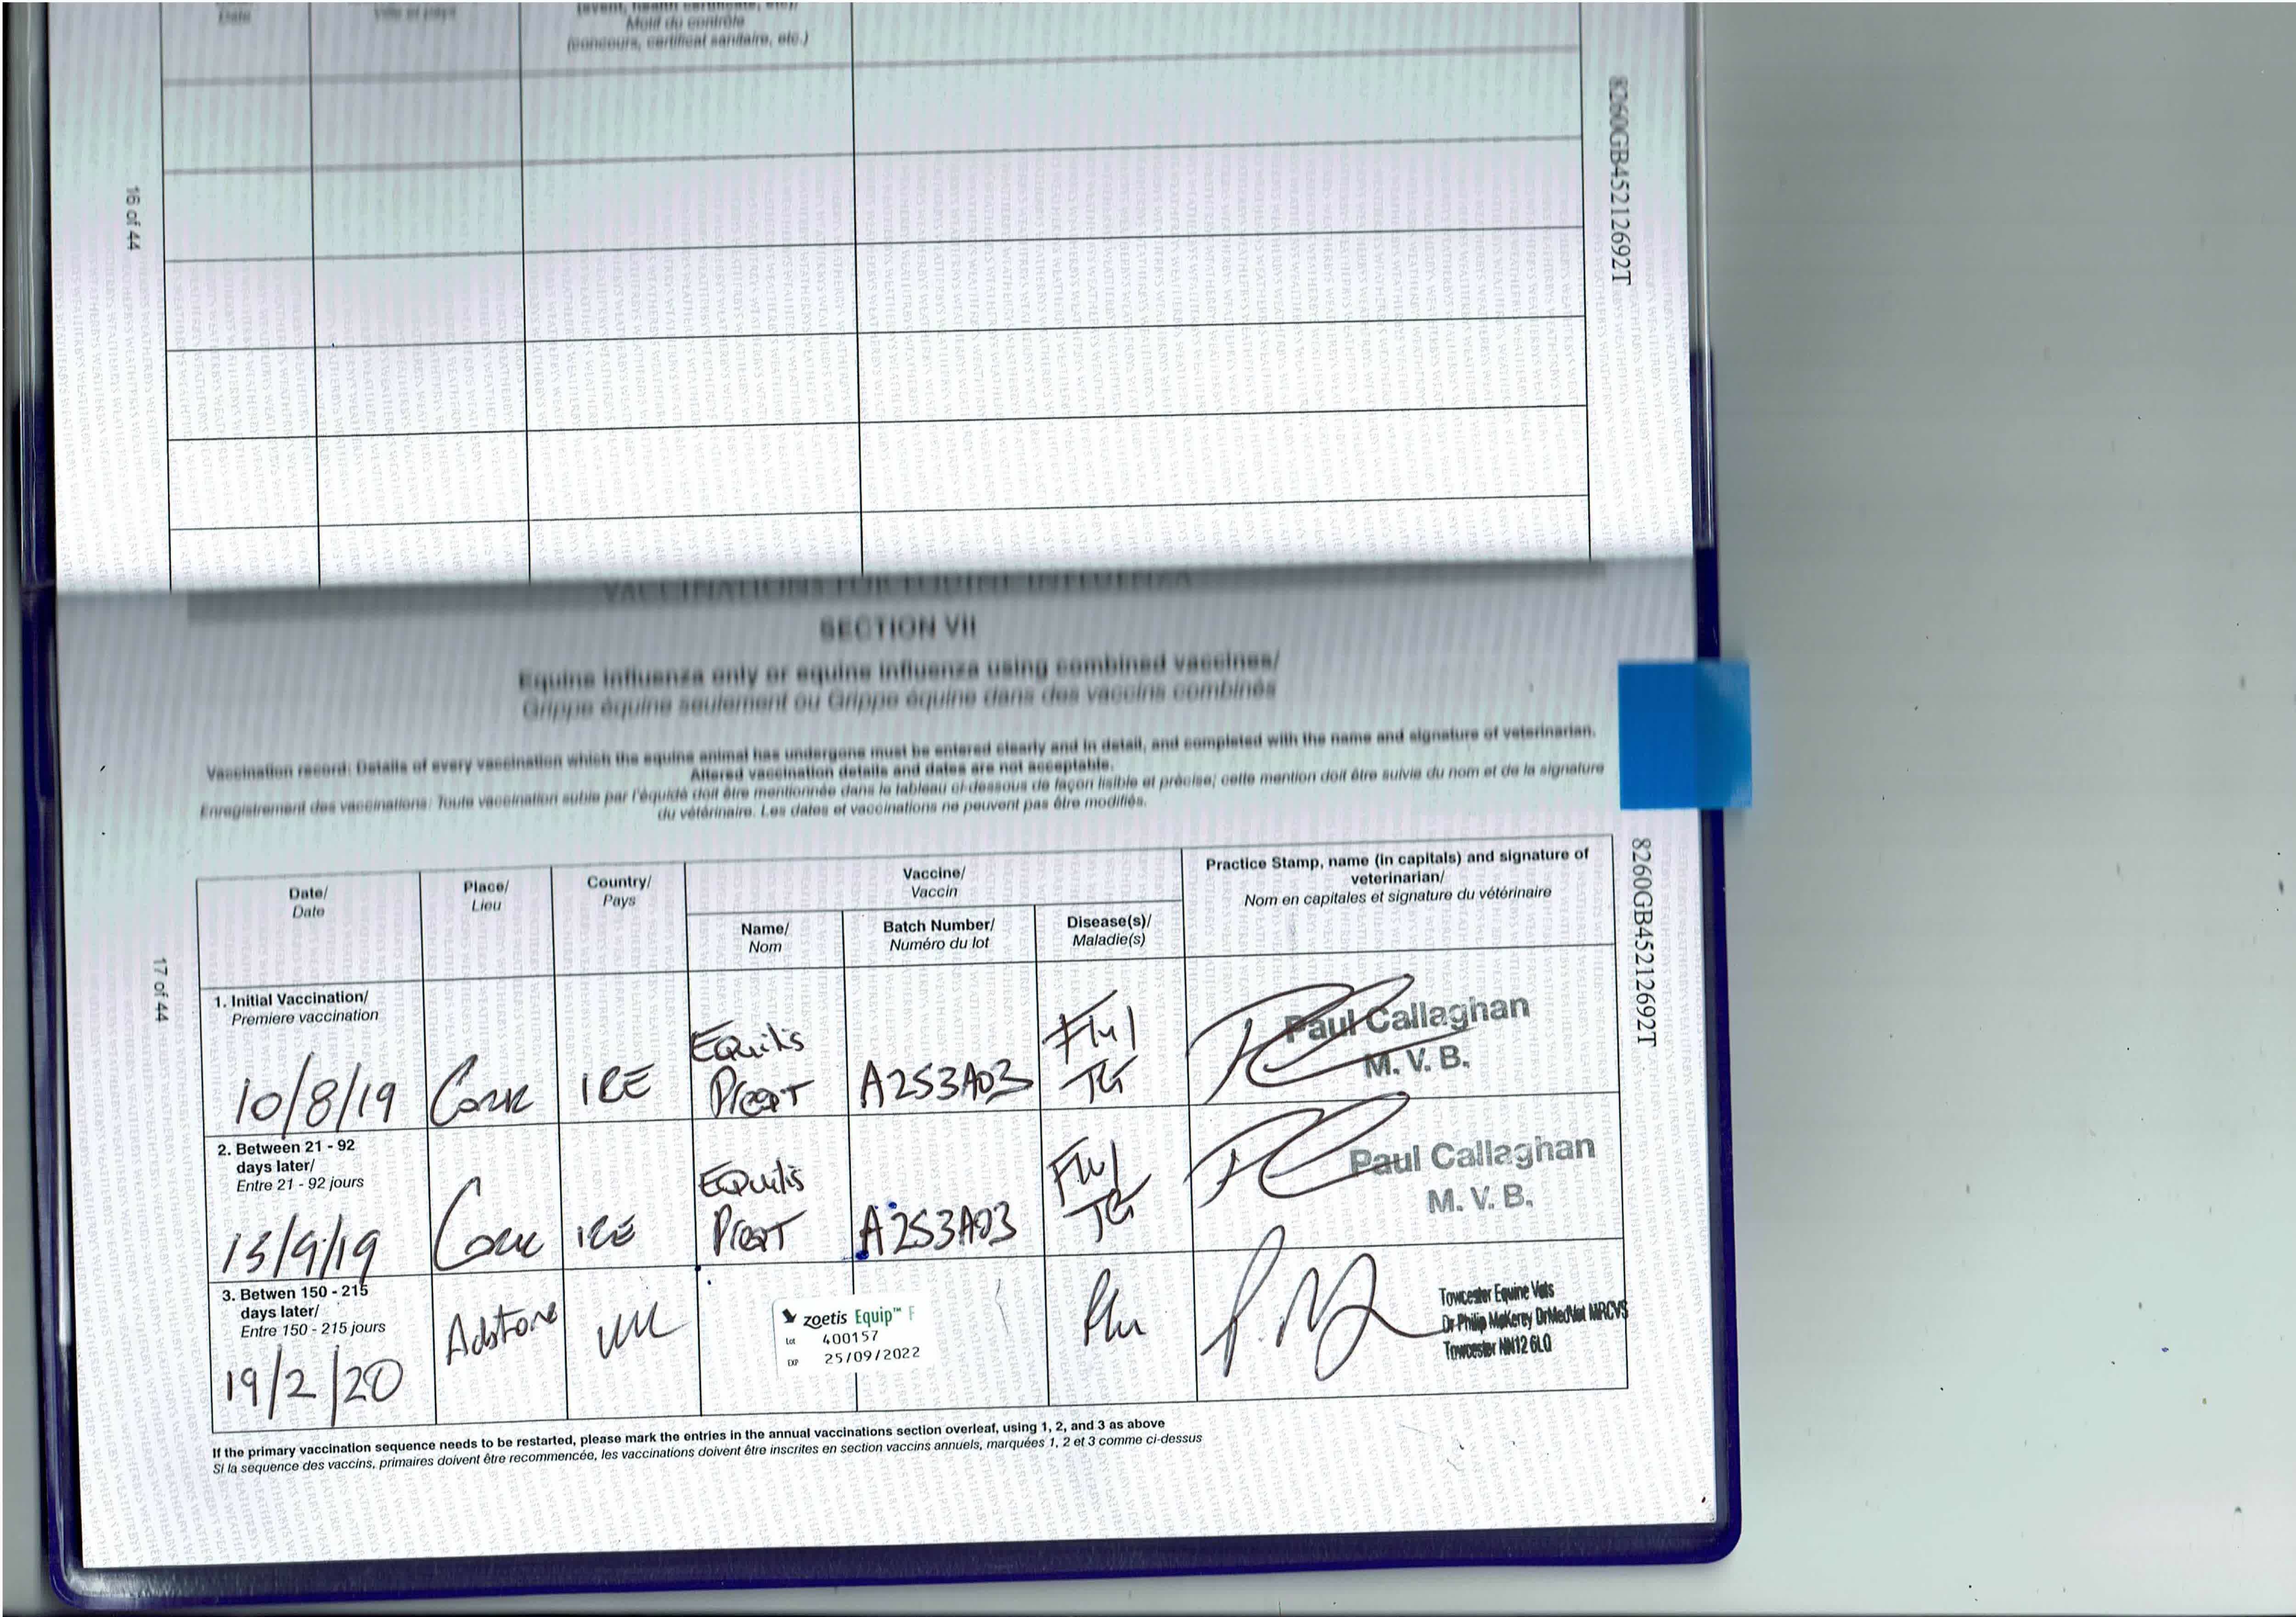 Date
Ville et pays
(event, health certificate, etc)/
Motif du contrôle
(concours, certificat sanitaire, etc.)
16 of 44
8260GB45212692T
VACCINATIONS FOR EQUINE INFLUENZA
SECTION VII
Equine influenza only or equine influenza using combined vaccines/
Grippe équine seulement ou Grippe équine dans des vaccins combinés
Vaccination record: Details of every vaccination which the equine animal has undergone must be entered clearly and in detail, and completed with the name and signature of veterinarian.
Altered vaccination details and dates are not acceptable.
Enregistrement des vaccinations: Toute vaccination subie par l'équidé doit être mentionnée dans le tableau ci-dessous de façon lisible et précise; cette mention doit être suivie du nom et de la signature
du vétérinaire. Les dates et vaccinations ne peuvent pas être modifiés.
17 of 44
8260GB45212692T
Date/
Date
Place/
Lieu
Country/
Pays
Vaccine/
Vaccin
Name/
Nom
Batch Number/
Numéro du lot
Disease(s)/
Maladie(s)
Practice Stamp, name (in capitals) and signature of
veterinarian/
Nom en capitales et signature du vétérinaire
1. Initial Vaccination/
Premiere vaccination
10/8/19
Cork
IRE
Equilis
Preqt
A253A03
Flu/
TG
Paul Callaghan
M. V. B.
2. Between 21 - 92
days later/
Entre 21 - 92 jours
13/9/19
Cork
IRE
Equilis
Preqt
A253A03
Flu/
TG
Paul Callaghan
M. V. B.
3. Betwen 150 - 215
days later/
Entre 150 - 215 jours
19/2/20
Adstone
UK
zoetis Equip™ F
Lot 400157
EXP 25/09/2022
Flu
Towcester Equine Vets
Dr Philip McKerey DrMedVet MRCVS
Towcester NN12 6LQ
If the primary vaccination sequence needs to be restarted, please mark the entries in the annual vaccinations section overleaf, using 1, 2, and 3 as above
Si la sequence des vaccins, primaires doivent être recommencée, les vaccinations doivent être inscrites en section vaccins annuels, marquées 1, 2 et 3 comme ci-dessus